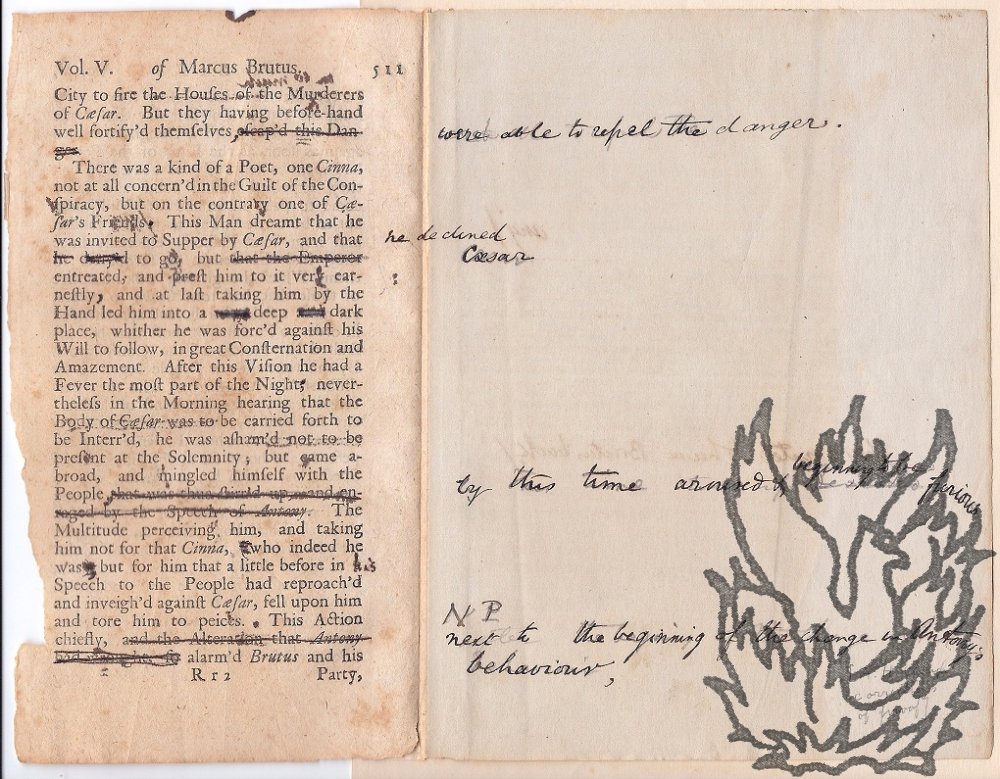 Vol. V. of Marcus Brutus. 511
City to fire the Houſes of the Murderers
of Cæſar. But they having before-hand
well fortify'd themſelves, eſcap'd this Dan-
ger.
There was a kind of a Poet, one Cinna,
not at all concern'd in the Guilt of the Con-
ſpiracy, but on the contrary one of Cæ-
ſar's Friends. This Man dreamt that he
was invited to Supper by Cæſar, and that
he deny'd to go, but that the Emperor
entreated, and preſt him to it very ear-
neſtly, and at laſt taking him by the
Hand led him into a deep dark
place, whither he was forc'd againſt his
Will to follow, in great Conſternation and
Amazement. After this Viſion he had a
Fever the moſt part of the Night; never-
theleſs in the Morning hearing that the
Body of Cæſar was to be carried forth to
be Interr'd, he was aſham'd not to be
preſent at the Solemnity; but came a-
broad, and mingled himſelf with the
People that was thus ſtirr'd up and en-
raged by the Speech of Antony. The
Multitude perceiving him, and taking
him not for that Cinna, who indeed he
was, but for him that a little before in his
Speech to the People had reproach'd
and inveigh'd againſt Cæſar, fell upon him
and tore him to peices. This Action
chiefly, and the Alteration that Antony
alarm'd Brutus and his
R r 2 Party,
were able to repel the danger.
he declined
Cæsar
:
by this time aroused & beginning to be furious
N P
next to the beginning of the change in Antony's
behaviour,